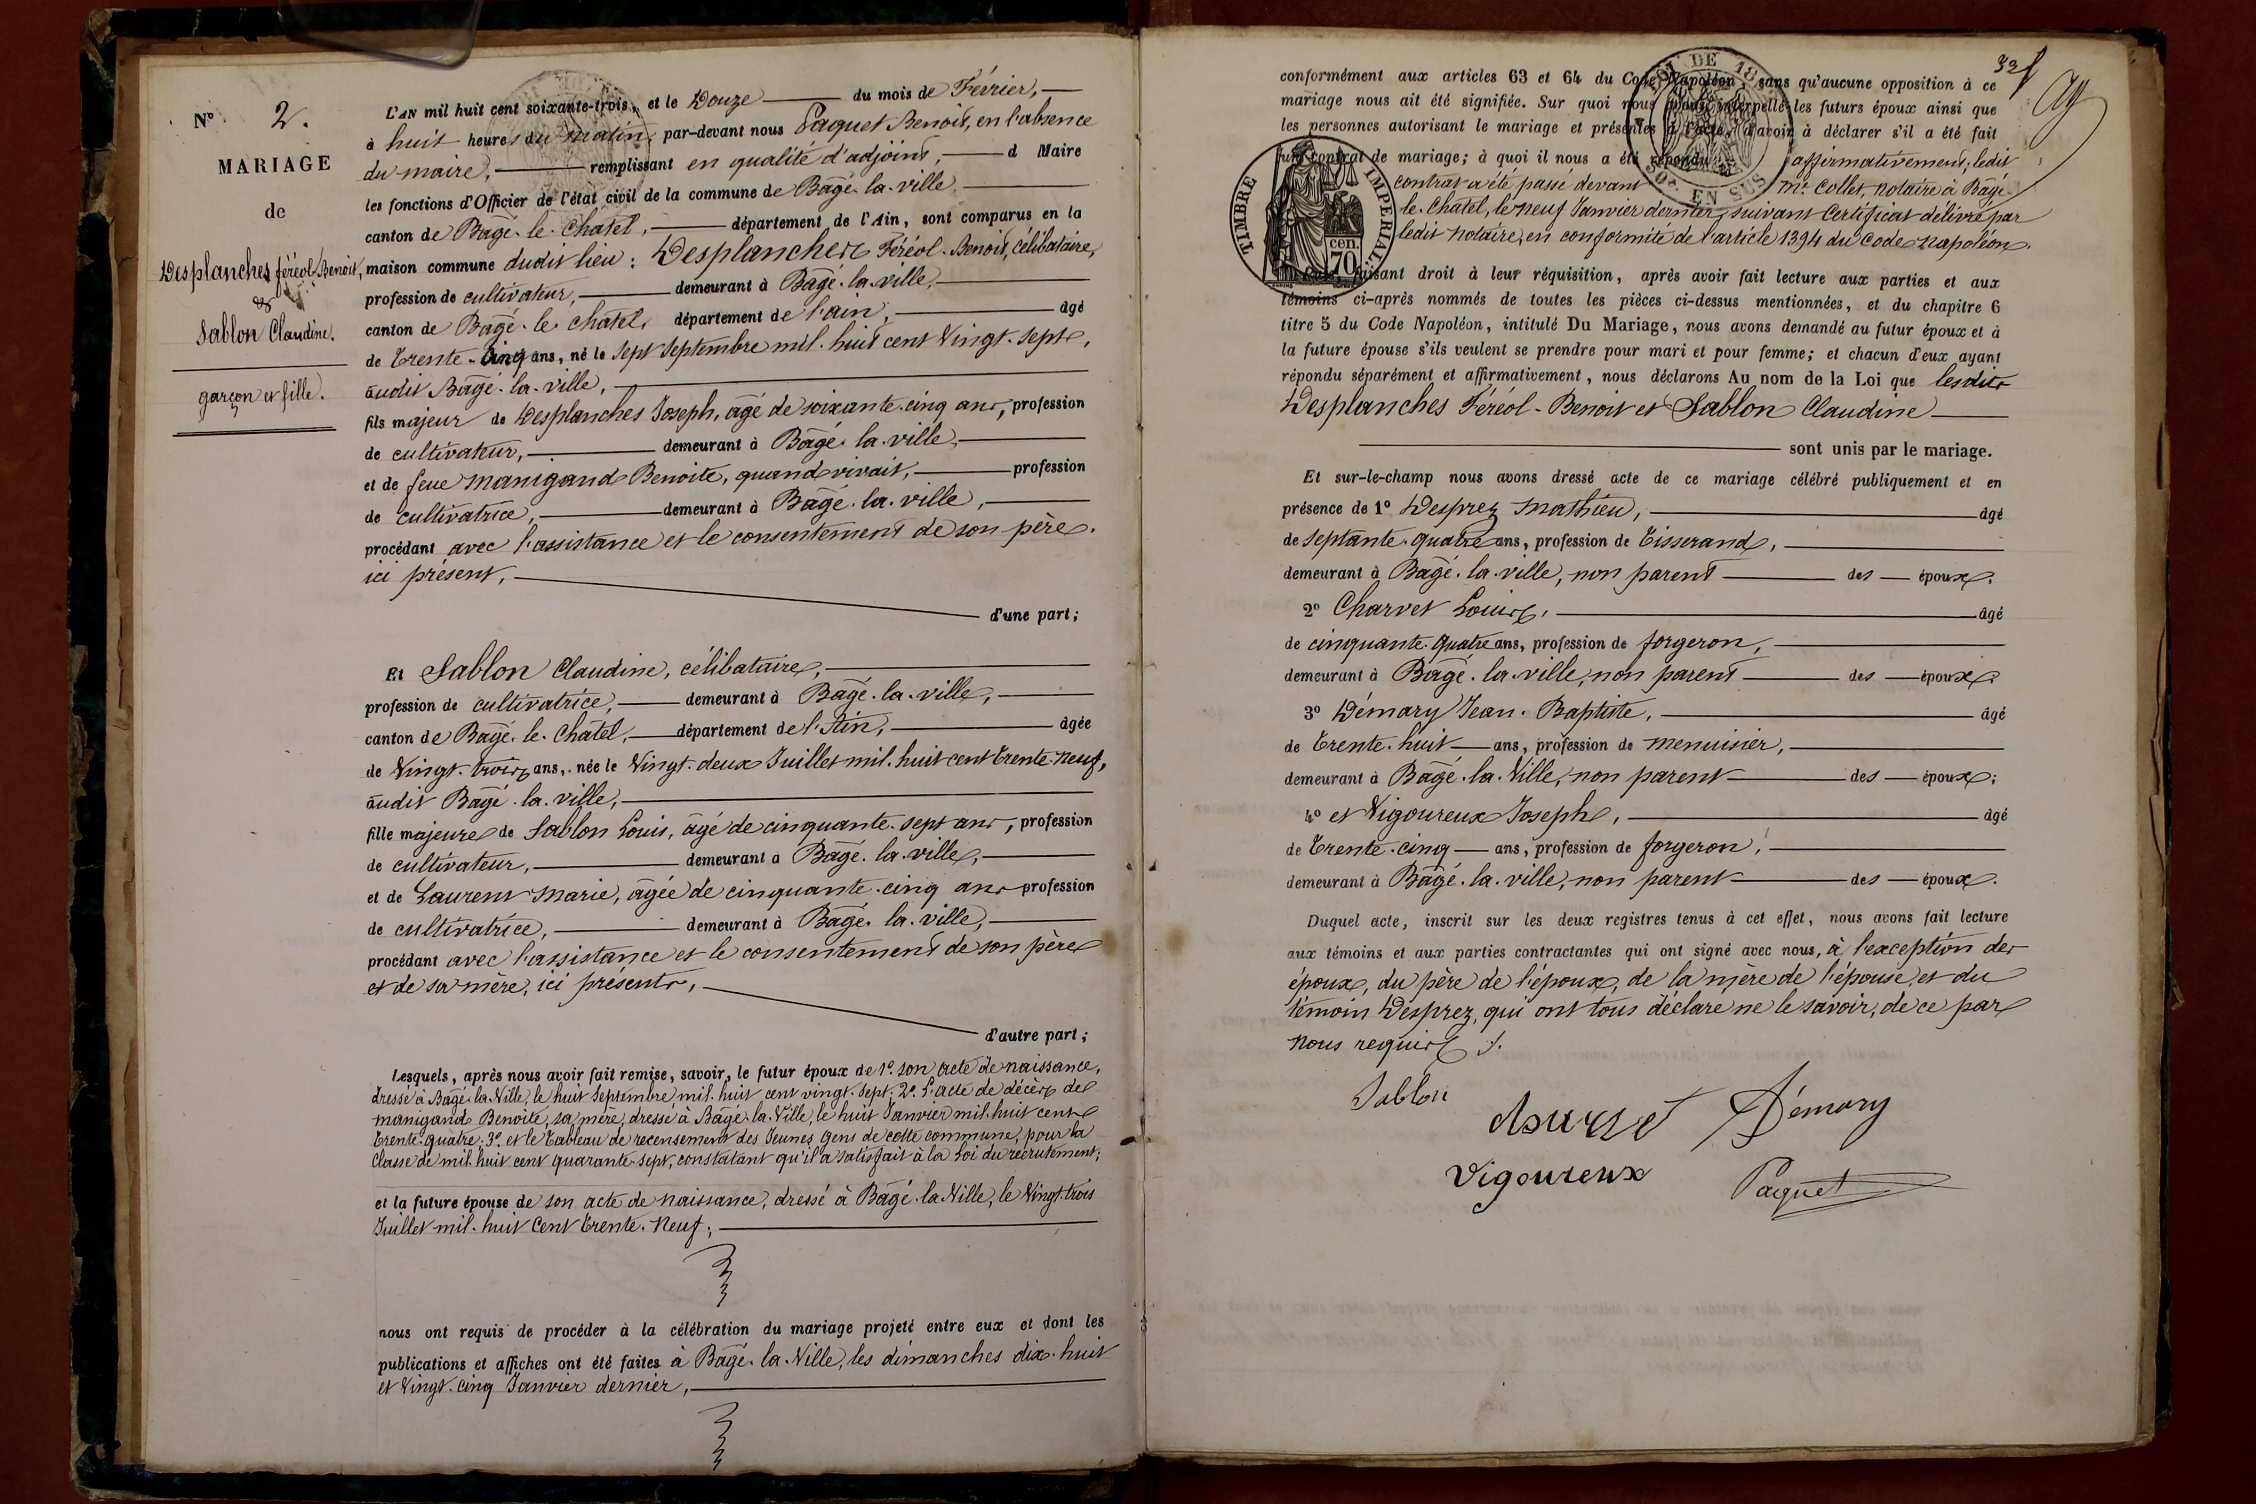 N° 2.
MARIAGE
de
Desplanches féréol-Benoit,
&
Sablon Claudine.
garçon et fille.
L'AN mil huit cent soixante-trois, et le Douze du mois de Février,
à huit heures du matin, par-devant nous Paquet Benoit, en l'absence
du maire, remplissant en qualité d'adjoint, d Maire
les fonctions d'Officier de l'état civil de la commune de Bâgé-la-ville
canton de Bâgé-le-Châtel, département de l'Ain, sont comparus en la
maison commune dudit lieu : Desplanches Féréol-Benoit, célibataire,
profession de cultivateur, demeurant à Bâgé-la-ville,
canton de Bâgé-le-châtel, département de l'ain, âgé
de Trente-Cinq ans, né le sept septembre mil-huit cent Vingt-sept,
audit Bâgé-la-ville,
fils majeur de Desplanches Joseph, âgé de soixante-cinq ans, profession
de cultivateur, demeurant à Bâgé-la-ville,
et de feue Manigand Benoite, quand vivait, profession
de cultivatrice, demeurant à Bâgé-la-ville,
procédant avec l'assistance et le consentement de son père
ici présent,
d'une part;
Et Sablon Claudine, célibataire,
profession de cultivatrice, demeurant à Bâgé-la-ville,
canton de Bâgé-le-Châtel, département de l'Ain, âgée
de Vingt-trois ans, née le Vingt-deux Juillet mil-huit cent Trente-neuf,
audit Bâgé-la-ville,
fille majeure de Sablon Louis, âgé de cinquante-sept ans, profession
de cultivateur, demeurant à Bâgé-la-ville,
et de Laurent Marie, âgée de cinquante-cinq ans profession
de cultivatrice, demeurant à Bâgé-la-ville,
procédant avec l'assistance et le consentement de son père
et de sa mère, ici présents,
d'autre part;
Lesquels, après nous avoir fait remise, savoir, le futur époux de 1° son acte de naissance,
dressé à Bâgé-la-Ville, le huit Septembre mil-huit cent vingt-sept; 2° L'acte de décès de
manigand Benoite, sa mère, dressé à Bâgé-la-Ville, le huit Janvier mil-huit cent
Trente-quatre; 3° et le Tableau de recensement des Jeunes gens de cette commune, pour la
Classe de mil-huit cent quarante-sept, constatant qu'il a satisfait à la Loi du recrutement;
et la future épouse de son acte de naissance, dressé à Bâgé-la-Ville, le Vingt-trois
Juillet mil-huit Cent Trente-Neuf;
nous ont requis de procéder à la célébration du mariage projeté entre eux et dont les
publications et affiches ont été faites à Bâgé-la-Ville, les dimanches dix-huit
et Vingt-cinq Janvier dernier,
32
conformément aux articles 63 et 64 du Code Napoléon, sans qu'aucune opposition à ce
mariage nous ait été signifiée. Sur quoi nous avons interpellé les futurs époux ainsi que
les personnes autorisant le mariage et présentes à l'acte, d'avoir à déclarer s'il a été fait
un contrat de mariage; à quoi il nous a été répondu affirmativement; ledit
contrat a été passé devant Me Collet, notaire à Bâgé-
le-Châtel, le neuf Janvier dernier, suivant Certificat délivré par
ledit notaire, en conformité de l'article 1394 du Code Napoléon.
TIMBRE IMPERIAL
70 cen.
DE 18
50e EN SUS
faisant droit à leur réquisition, après avoir fait lecture aux parties et aux
témoins ci-après nommés de toutes les pièces ci-dessus mentionnées, et du chapitre 6
titre 5 du Code Napoléon, intitulé Du Mariage, nous avons demandé au futur époux et à
la future épouse s'ils veulent se prendre pour mari et pour femme; et chacun d'eux ayant
répondu séparément et affirmativement, nous déclarons Au nom de la Loi que lesdits
Desplanches Féréol-Benoit et Sablon Claudine
sont unis par le mariage.
Et sur-le-champ nous avons dressé acte de ce mariage célébré publiquement et en
présence de 1° Desprez Mathieu, âgé
de septante-quatre ans, profession de Tisserand,
demeurant à Bâgé-la-ville, non parent des époux.
2° Charvet Louis, âgé
de cinquante-quatre ans, profession de forgeron,
demeurant à Bâgé-la-ville, non parent des époux.
3° Démary Jean-Baptiste, âgé
de Trente-huit ans, profession de menuisier,
demeurant à Bâgé-la-Ville, non parent des époux;
4° et Vigoureux Joseph, âgé
de Trente-cinq ans, profession de forgeron,
demeurant à Bâgé-la-ville, non parent des époux.
Duquel acte, inscrit sur les deux registres tenus à cet effet, nous avons fait lecture
aux témoins et aux parties contractantes qui ont signé avec nous, à l'exception des
époux, du père de l'époux, de la mère de l'épouse, et du
témoin Desprez, qui ont tous déclaré ne le savoir, de ce par
nous requis.
Sablon
Démary
Vigoureux
Paquet